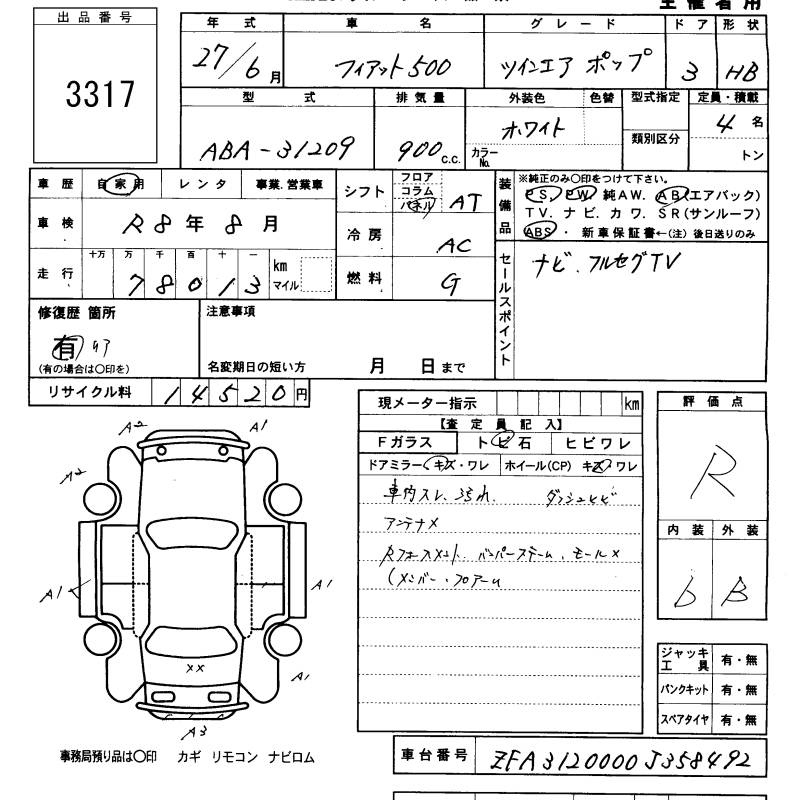 主催者用
出品番号
3317
年式 車名 グレード ドア 形状
27/6月 フィアット500 ツインエア ポップ 3 HB
型式 排気量 外装色 色替 型式指定 定員・積載
ABA-31209 900c.c. ホワイト カラーNo. 類別区分 4名
トン
車歴 自家用 レンタ 事業.営業車
車検 R8年8月
走行 十万 万 千 百 十 一 km マイル
78013
シフト フロア コラム パネル AT
冷房 AC
燃料 G
装備品
※純正のみ〇印をつけて下さい。
PS. PW. 純AW. AB(エアバック)
TV. ナビ. カワ. SR(サンルーフ)
ABS・ 新車保証書←(注) 後日送りのみ
セールスポイント
ナビ.フルセグTV
修復歴 箇所
有
(有の場合は〇印を)
注意事項
名変期日の短い方 月 日まで
リサイクル料 14520円
現メーター指示 km
【査定員記入】
Fガラス トビ石 ヒビワレ
ドアミラー キズ・ワレ ホイール(CP) キズ・ワレ
車内スレ.ヨゴレ. ダッシュヒビ
アンテナ×
Rフォースメント. バンパーステーム. モール×
(メンバー.フロアー
評価点
R
内装 外装
b B
ジャッキ工具 有・無
パンクキット 有・無
スペアタイヤ 有・無
A2 A1
A2
A1 A1
XX
A1
A3
事務局預り品は〇印 カギ リモコン ナビロム
車台番号 ZFA3120000J358492